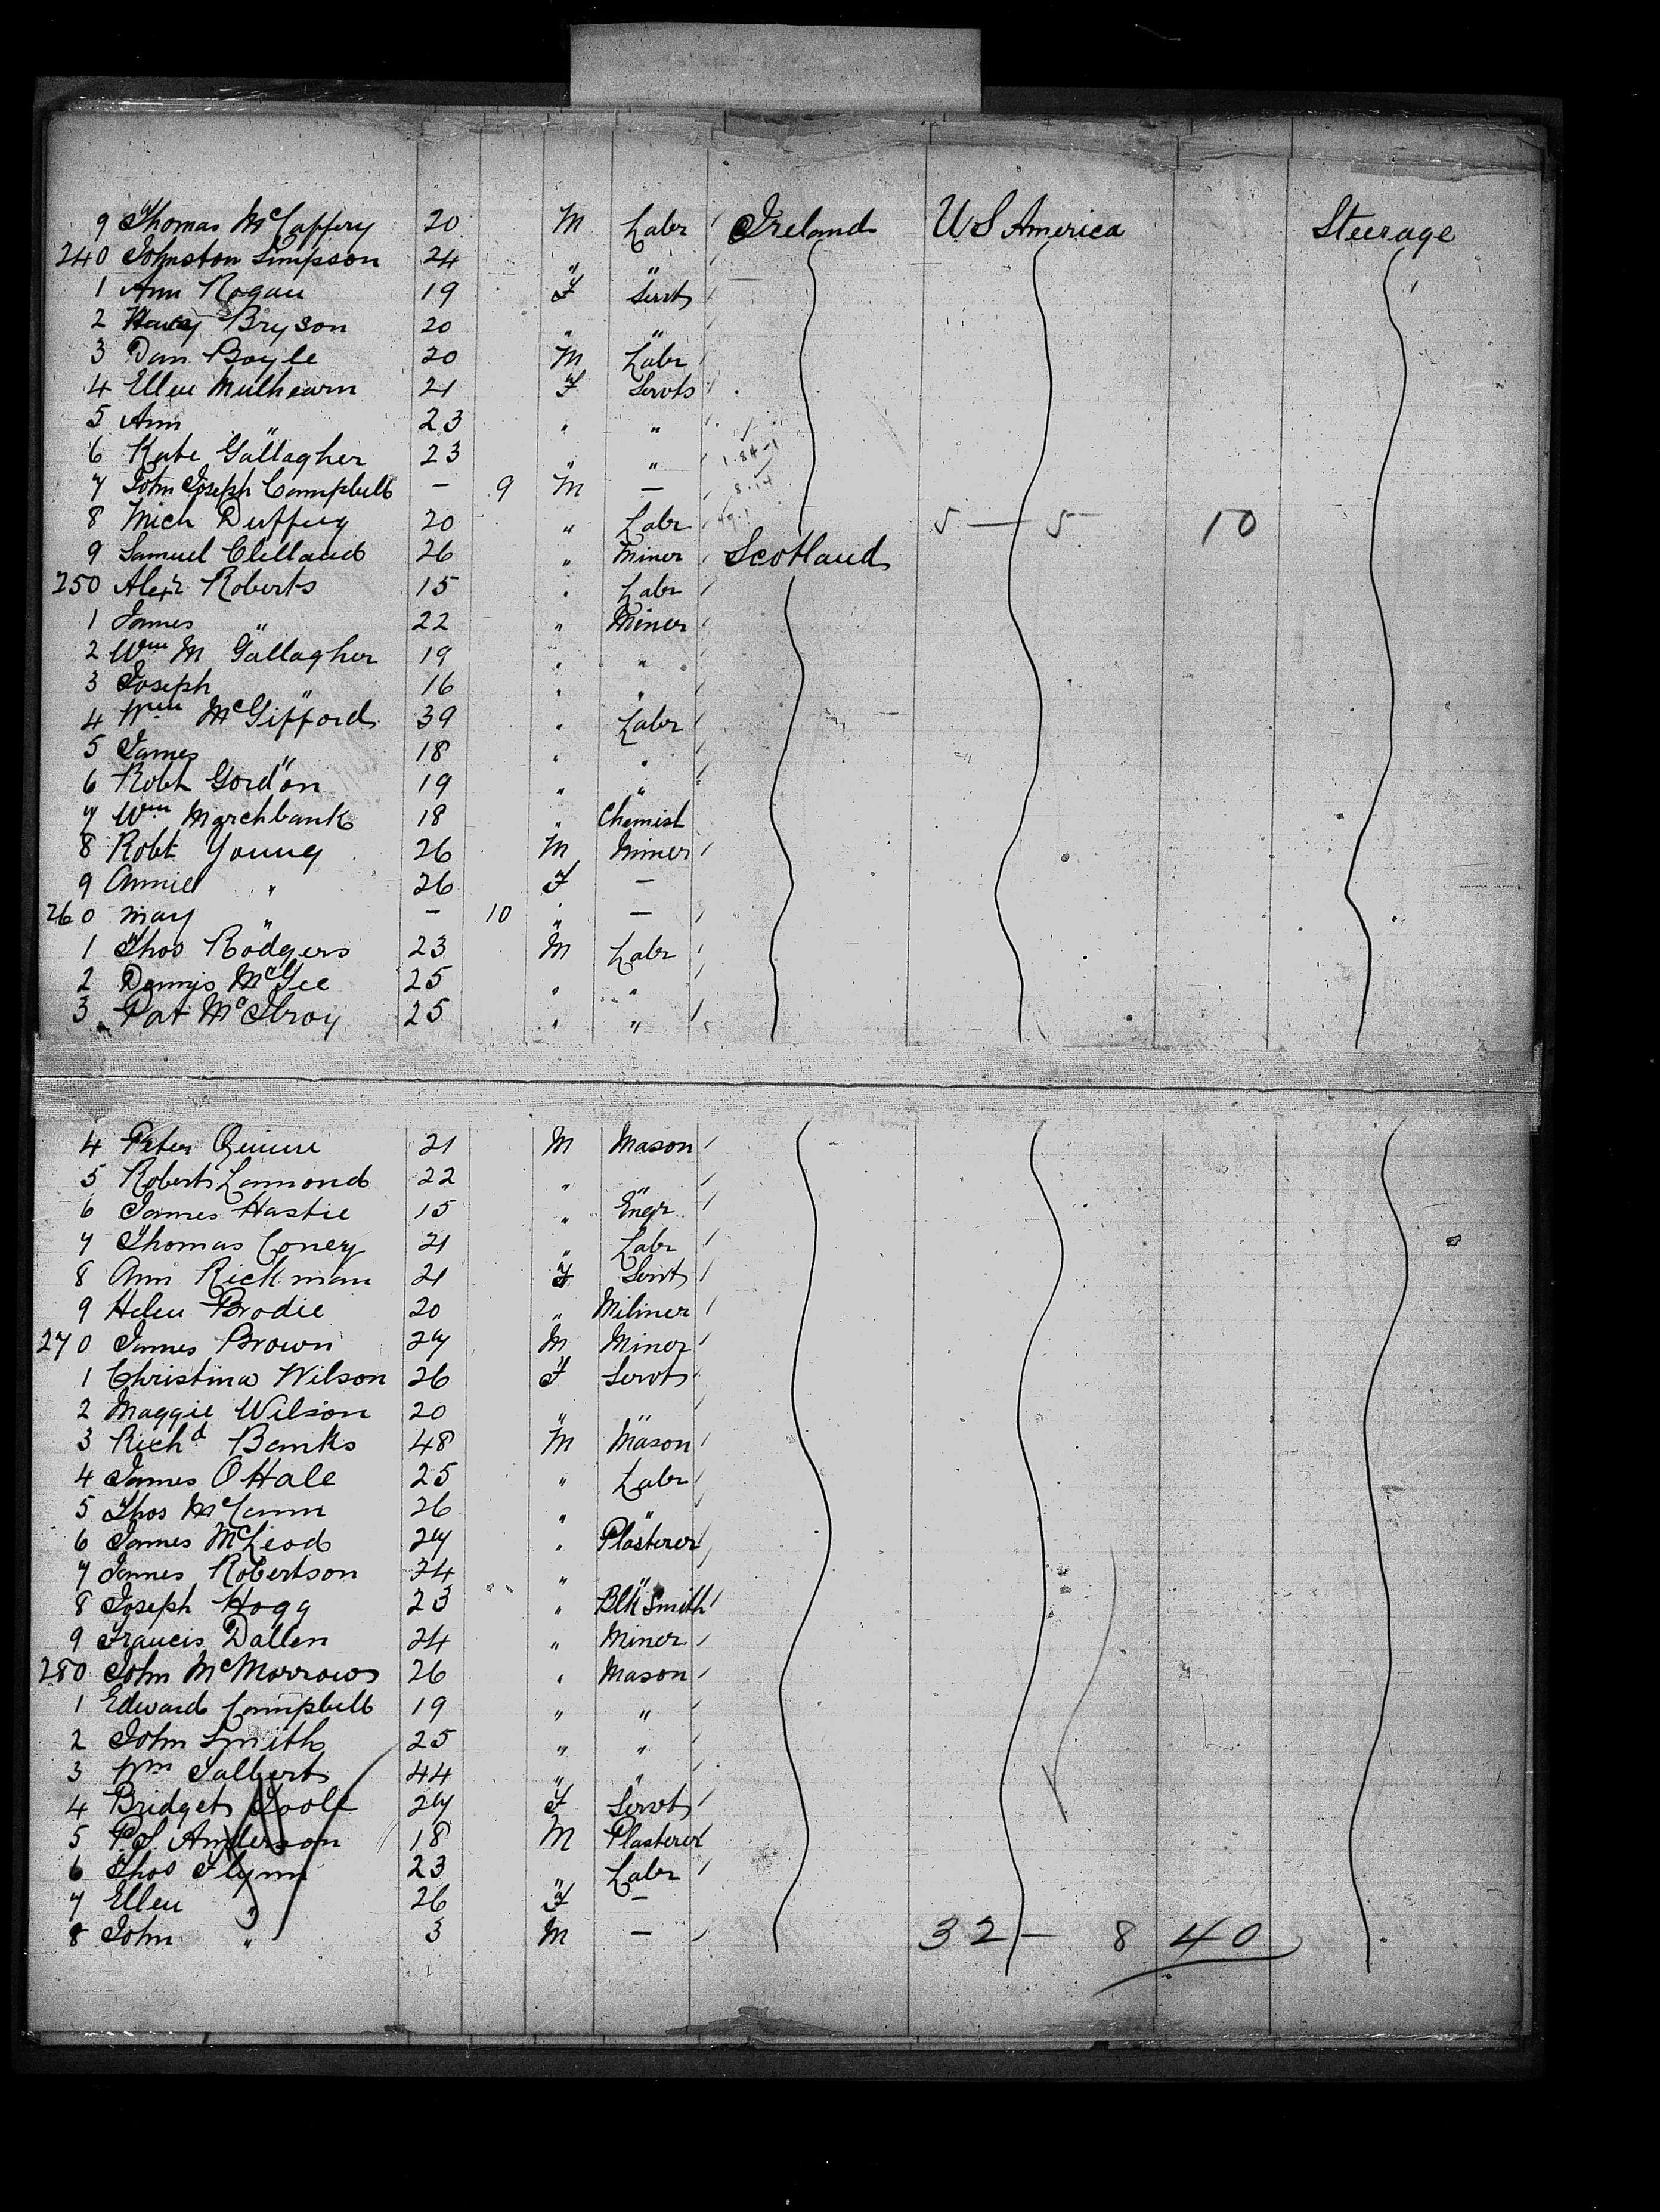 9 Thomas McCaffery 20 M Labr Ireland U S America Steerage
240 Johnston Simpson 24 " "
1 Ann Rogan 19 F Servt
2 Bryson 20 " "
3 Dan Boyle 20 M Labr
4 Ellen Mulhearn 21 F Servts
5 Ann " 23 " "
6 Kate Gallagher 23 " "
7 John Joseph Campbell — 9 M —
8 Mich Duffy 20 " Labr 5 — 5 10
9 Samuel Clelland 26 " Miner Scotland
250 Alexr Roberts 15 " Labr
1 James " 22 " Miner
2 Wm M Gallagher 19 " "
3 Joseph " 16 " "
4 Wm McGifford 39 " Labr
5 James " 18 " "
6 Robt Gordon 19 " "
7 Wm Marchbank 18 " Chemist
8 Robt Young 26 M Miner
9 Annie " 26 F —
260 May " — 10 " —
1 Thos Rodgers 23 M Labr
2 Dennis McGee 25 " "
3 Pat McIlroy 25 " "
4 Peter Quinn 21 M Mason
5 Robert Lamond 22 " "
6 James Hastie 15 " Engr
7 Thomas Coney 21 " Labr
8 Ann Rickman 21 F Servt
9 Helen Brodie 20 " Miliner
270 James Brown 27 M Miner
1 Christina Wilson 26 F Servt
2 Maggie Wilson 20 " "
3 Richd Banks 48 M Mason
4 James O Hale 25 " Labr
5 Thos McCann 26 " "
6 James McLeod 27 " Plasterer
7 James Robertson 24 " "
8 Joseph Hogg 23 " Blk Smith
9 Francis Dallen 24 " Miner
280 John McMorrow 26 " Mason
1 Edward Campbell 19 " "
2 John Smith 25 " "
3 Wm Talbert 44 " "
4 Bridget 27 F Servt
5 P.S. Anderson 18 M Plasterer
6 Thos Flynn 23 " Labr
7 Ellen " 26 F —
8 John " 3 M — 32 — 8 40